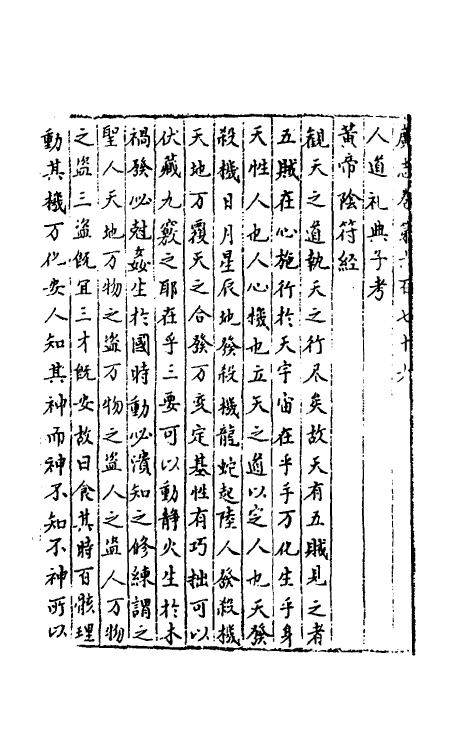 廣志卷第一百七十六
人道礼典子考
黄帝陰符經
觀天之道執天之行尽矣故天有五賊見之者
五賊在心施行於天宇宙在乎手万化生乎身
天性人也人心機也立天之道以定人也天發
殺機日月星辰地發殺機龍蛇起陸人發殺機
天地万覆天之合發万变定基性有巧拙可以
伏藏九竅之耶在乎三要可以動静火生於木
禍發必尅姦生於國時動必潰知之修練謂之
聖人天地万物之盗万物之盗人之盗人万物
之盗三盗既宜三才既安故曰食其時百骸理
動其機万化安人知其神而神不知不神所以